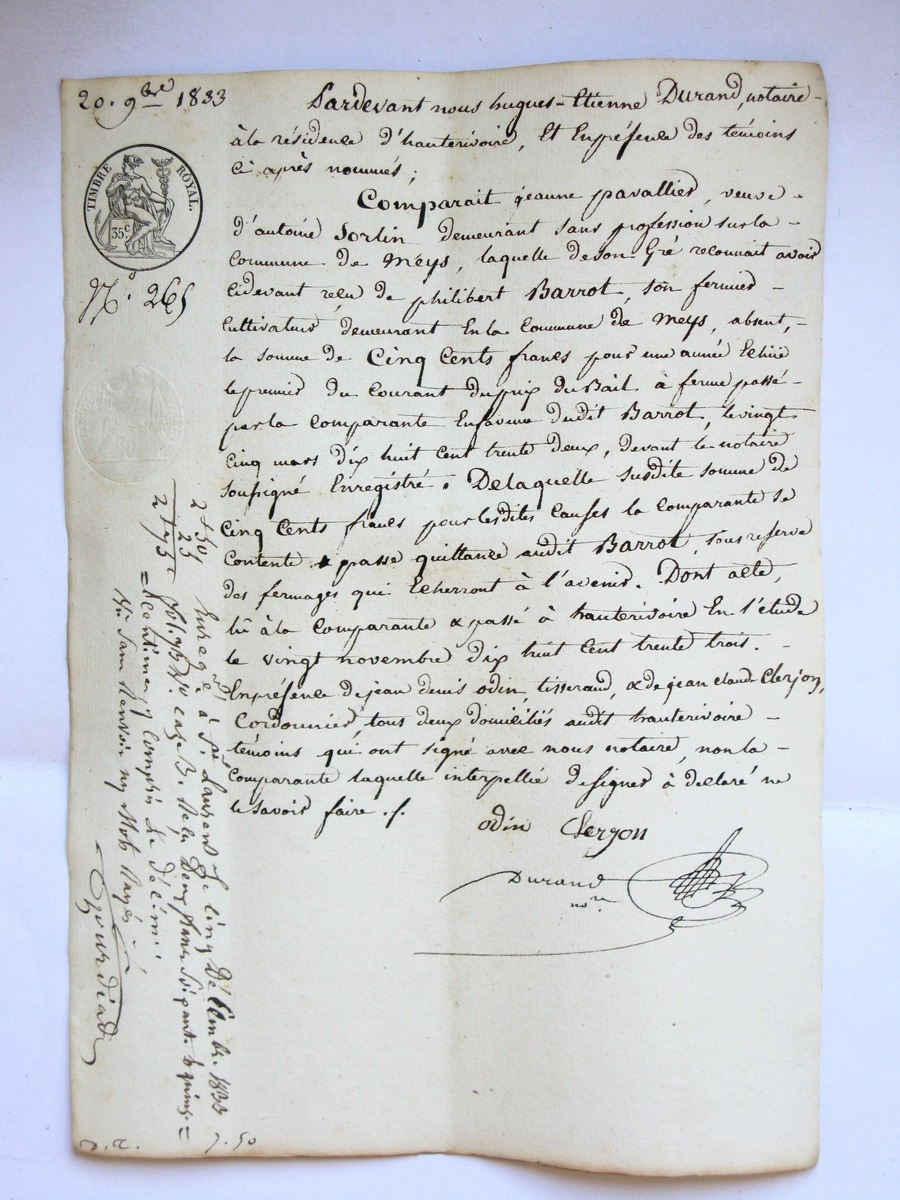 20. 9bre 1833
TIMBRE ROYAL.
35c
No. 265
Pardevant nous hugues-Etienne Durand, notaire-
à la résidence d'hauterivoire, Et Enprésence des témoins
Ci après nommés;
Comparait jeanne pavallier, veuve-
d'antoine Sorlin demeurant sans profession sur la-
Commune de Meys, laquelle de son Gré reconnait avoir
Cidevant reçu de philibert Barrot, son fermier-
Cultivateur demeurant En la Commune de Meys, absent,-
la somme de Cinq Cents francs pour une année Echue
le premier du Courant du prix du Bail à ferme passé-
par la Comparante Enfaveur dudit Barrot, le vingt
Cinq mars dix huit Cent trente deux, devant le notaire
soussigné Enregistré. De laquelle susdite somme de
Cinq Cents francs pour lesdites Causes la Comparante se
Contente & passe quittance audit Barrot, sous reserve
des fermages qui Echerront à l'avenir. Dont acte,
lu à la Comparante & passé à hauterivoire En l'étude
le vingt novembre dix huit Cent trente trois.
Enprésence de jean denis odin, tisserand, & de jean claude Clerjon,
Cordonnier, tous deux domiciliés audit hauterivoire-
témoins qui ont signé avec nous notaire, non la-
Comparante laquelle interpellée de signer à declaré ne
le savoir faire ./.
odin Clerjon
Durand
nore
2 f 50
25
2 f 75 c
Enregé à St Laurent le cinq Décembre 1833
fol. 93 Vo. case 3. Reçu Deux francs soixante & quinze =
= centimes y compris le décime.
7. 50